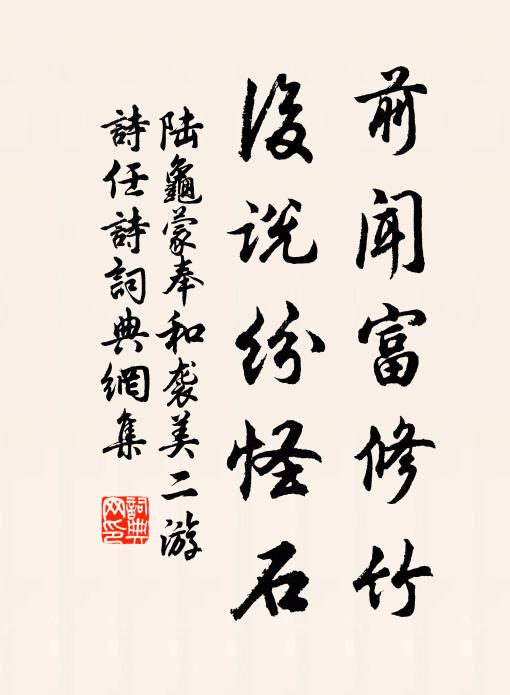 前闻富修竹
後说纷怪石
陆龜蒙奉和袭美二游
詩任詩詞典網集
詞典网印